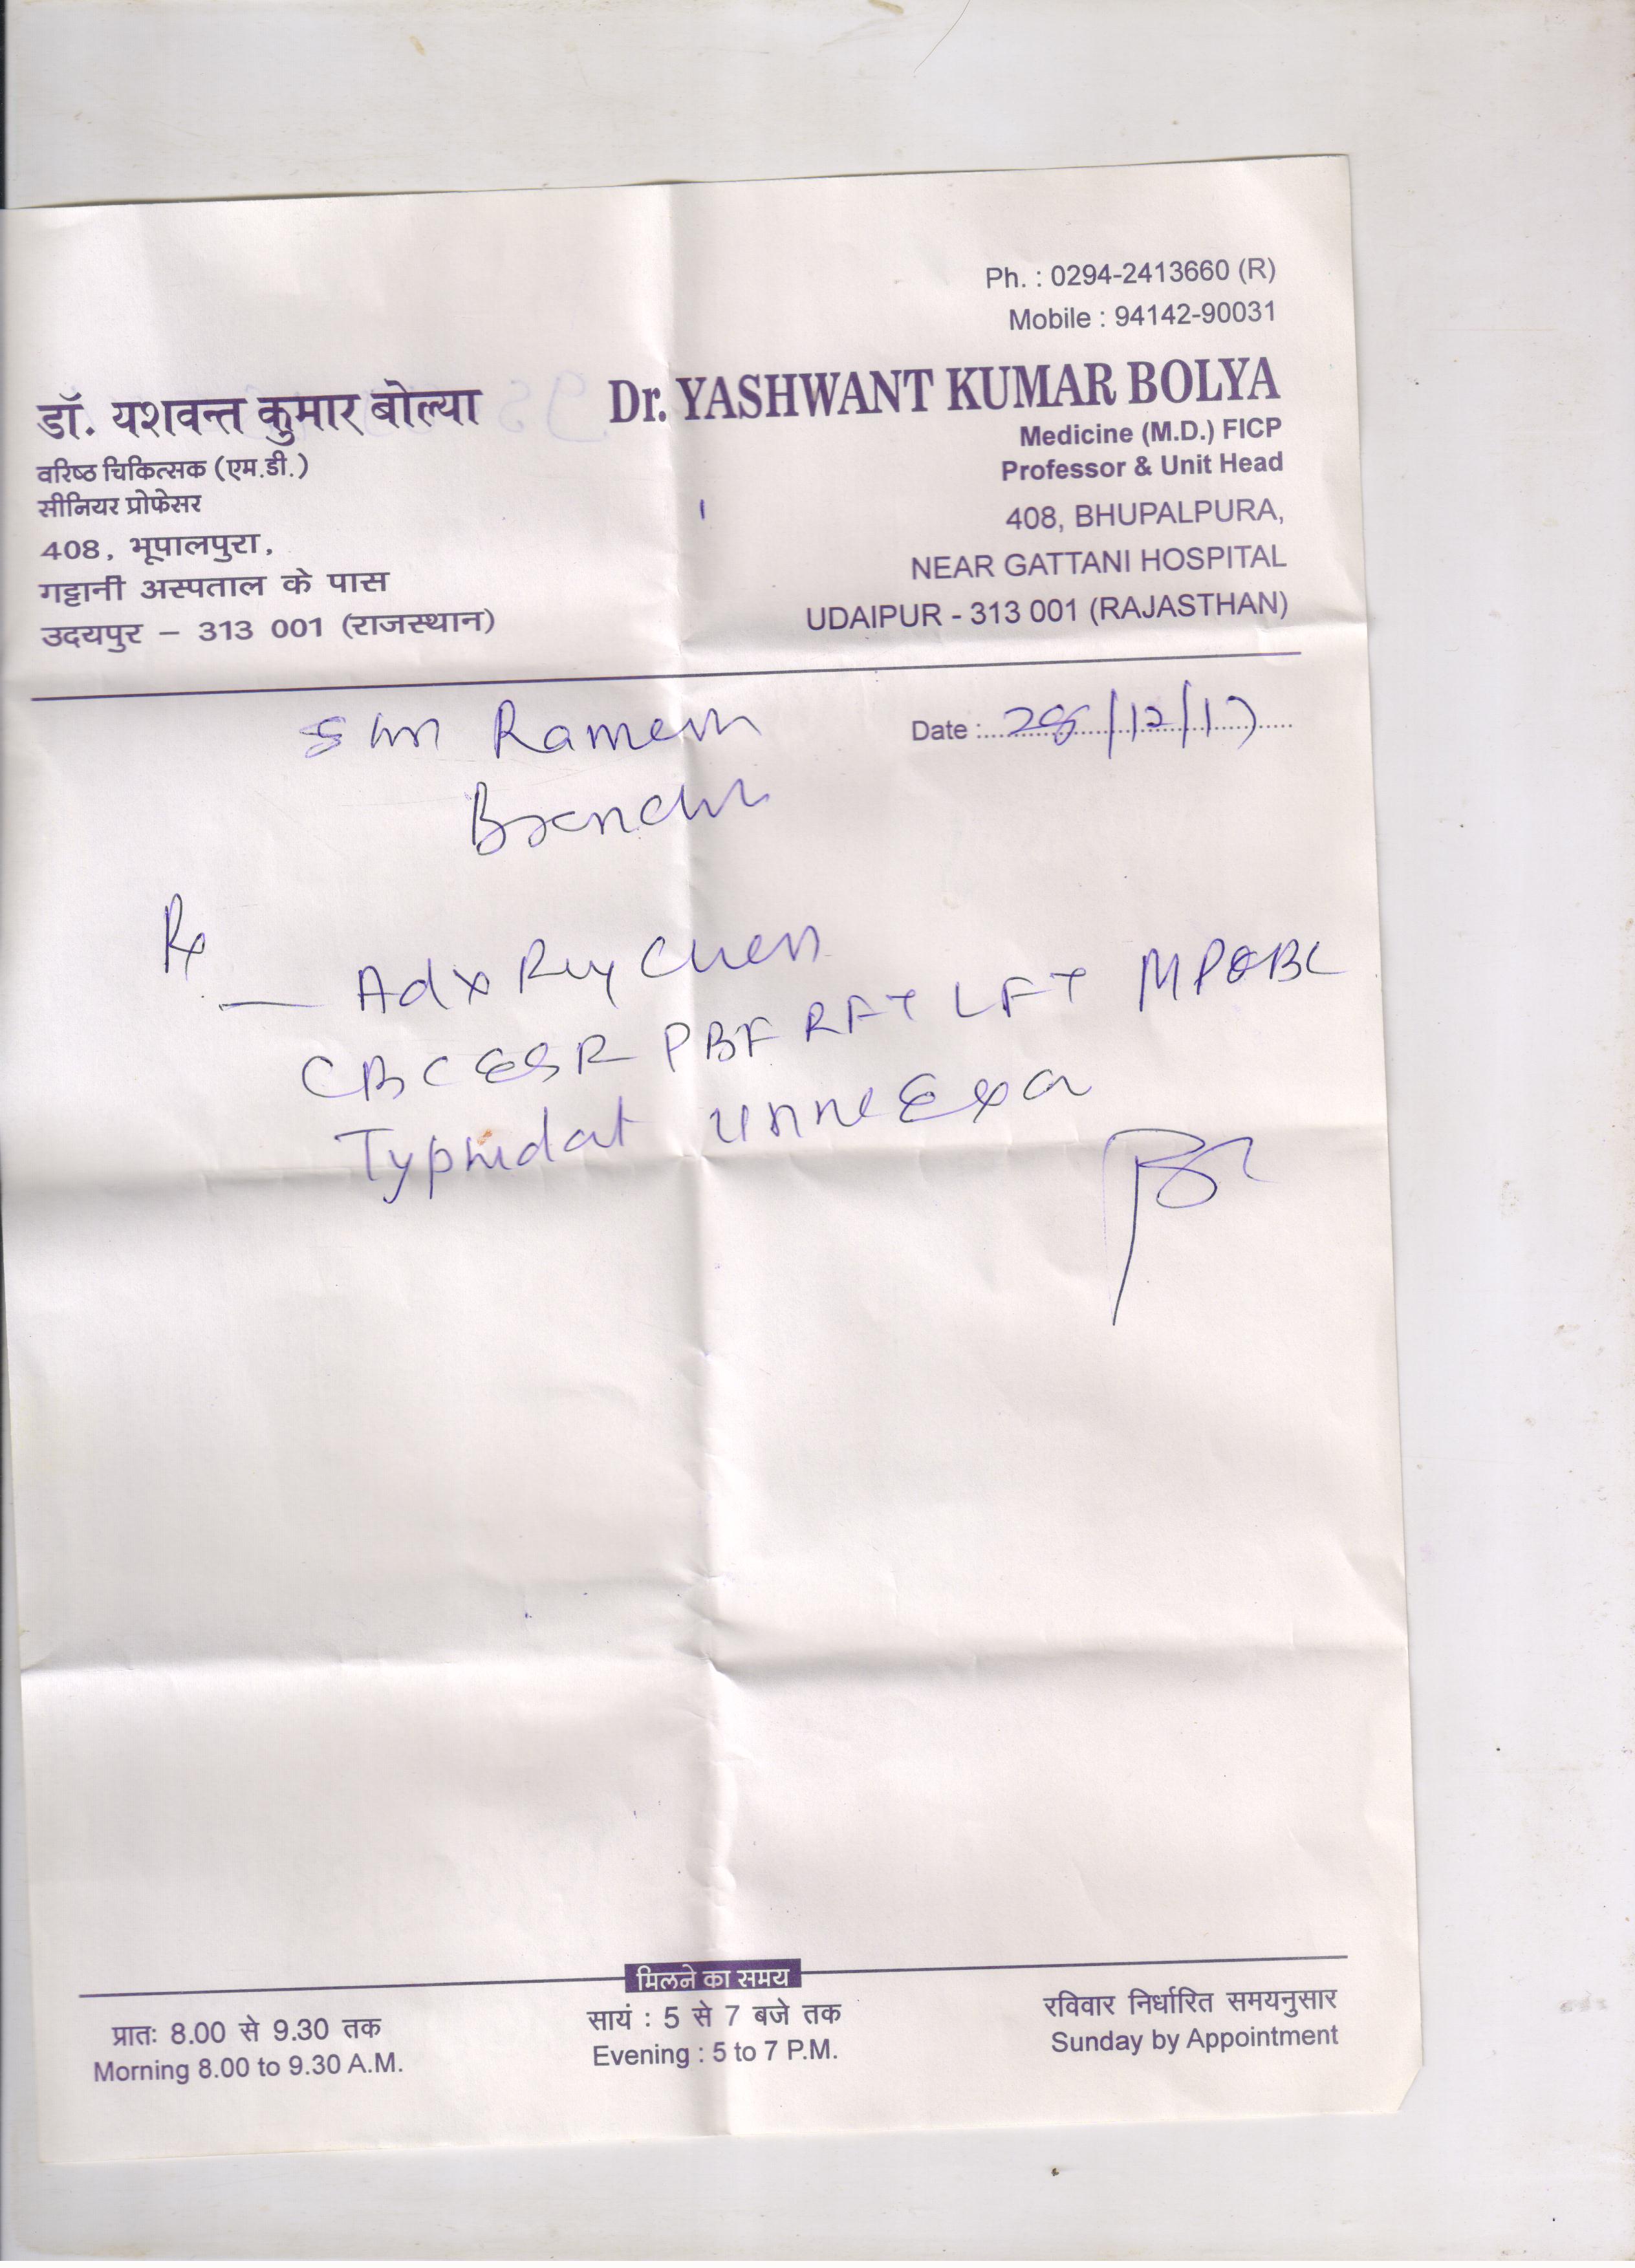 Ph. : 0294-2413660 (R)
Mobile : 94142-90031
डॉ. यशवन्त कुमार बोल्या
वरिष्ठ चिकित्सक (एम.डी.)
सीनियर प्रोफेसर
408, भूपालपुरा,
गट्टानी अस्पताल के पास
उदयपुर – 313 001 (राजस्थान)
Dr. YASHWANT KUMAR BOLYA
Medicine (M.D.) FICP
Professor & Unit Head
408, BHUPALPURA,
NEAR GATTANI HOSPITAL
UDAIPUR - 313 001 (RAJASTHAN)
Date : 28/12/17
Ramesh
Rx
— Adv X Ray Chest
CBC ESR PBF RFT LFT MP QBC
Typhidot Urine Exa
मिलने का समय
प्रातः 8.00 से 9.30 तक
Morning 8.00 to 9.30 A.M.
सायं : 5 से 7 बजे तक
Evening : 5 to 7 P.M.
रविवार निर्धारित समयनुसार
Sunday by Appointment